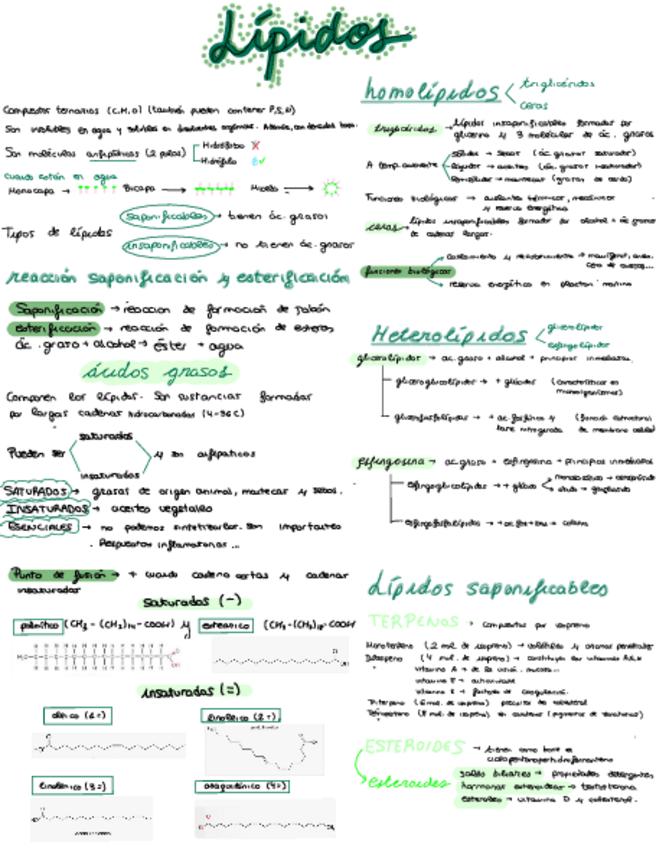 Lípidos
Compuestos ternarios (C,H,O) (también pueden contener P,S,N)
Son insolubles en agua y solubles en disolventes orgánicos. Además, son densidad baja.
Son moléculas anfipáticas (2 polos)
Hidrófobo
Hidrófilo
cuando están en agua
Monocapa → Bicapa → Micela →
Tipos de lípidos
saponificables → tienen ác. grasos
insaponificables → no tienen ác. grasos
reacción saponificación y esterificación
Saponificación → reacción de formación de jabón
esterificación → reacción de formación de ésteres
ác. graso + alcohol → éster + agua
ácidos grasos
Componen los lípidos. Son sustancias formadas
por largas cadenas hidrocarbonadas (4-36C)
Pueden ser
saturados
insaturados
y son anfipáticos
SATURADOS → grasas de origen animal, mantecas y sebos.
INSATURADOS → aceites vegetales
ESENCIALES → no podemos sintetizarlos. Son importantes
. Respuestas inflamatorias...
Punto de fusión → + cuando cadena cortas y cadenas
insaturadas
saturados (-)
palmítico (CH3 - (CH2)14 - COOH) y esteárico (CH3 - (CH2)16 - COOH
insaturados (=)
oleico (1=)
linoleico (2=)
linolénico (3=)
araquidónico (4=)
homolípidos
triglicéridos
ceras
triglicéridos → Lípidos insaponificables formados por
glicerina y 3 moléculas de ác. grasos
A temp. ambiente
sólidos → sebos (ác. grasos saturados)
líquidos → aceites (ác. grasos insaturados)
semisólidos → mantecas (grasas de cerdo)
Funciones biológicas → aislante térmico, mecánico
y reserva energética
ceras → lípidos insaponificables formados por alcohol + ác grasos
de cadenas largas.
funciones biológicas
reserva energética en plancton marino
Heterolípidos
glicerolípidos
esfingolípidos
glicerolípidos → ac. graso + alcohol + principios inmediatos.
gliceroglicolípidos → + glúcidos (característicos en
microorganismos)
glicerofosfolípidos → + ac. fosfórico y (función estructural
base nitrogenada de membrana celular)
esfingosina → ac. graso + esfingosina + principios inmediatos
esfingoglicolípidos → + glúcido
esfingofosfolípidos
Lípidos saponificables
TERPENOS → compuestos por isopreno
Monoterpeno (2 mol. de isopreno) → volátiles y aromas penetrantes
Diterpeno (4 mol. de isopreno) → constituyen las vitaminas A,E,K
vitamina E → antioxidante
vitamina K → factores de coagulación.
Triterpeno (6 mol. de isopreno) precursor de colesterol
ESTEROIDES → tienen como base el
ciclopentanoperhidrofenantreno
esteroides
sales biliares → propiedades detergentes
hormonas esteroideas → testosterona
esteroles → vitamina D y colesterol.